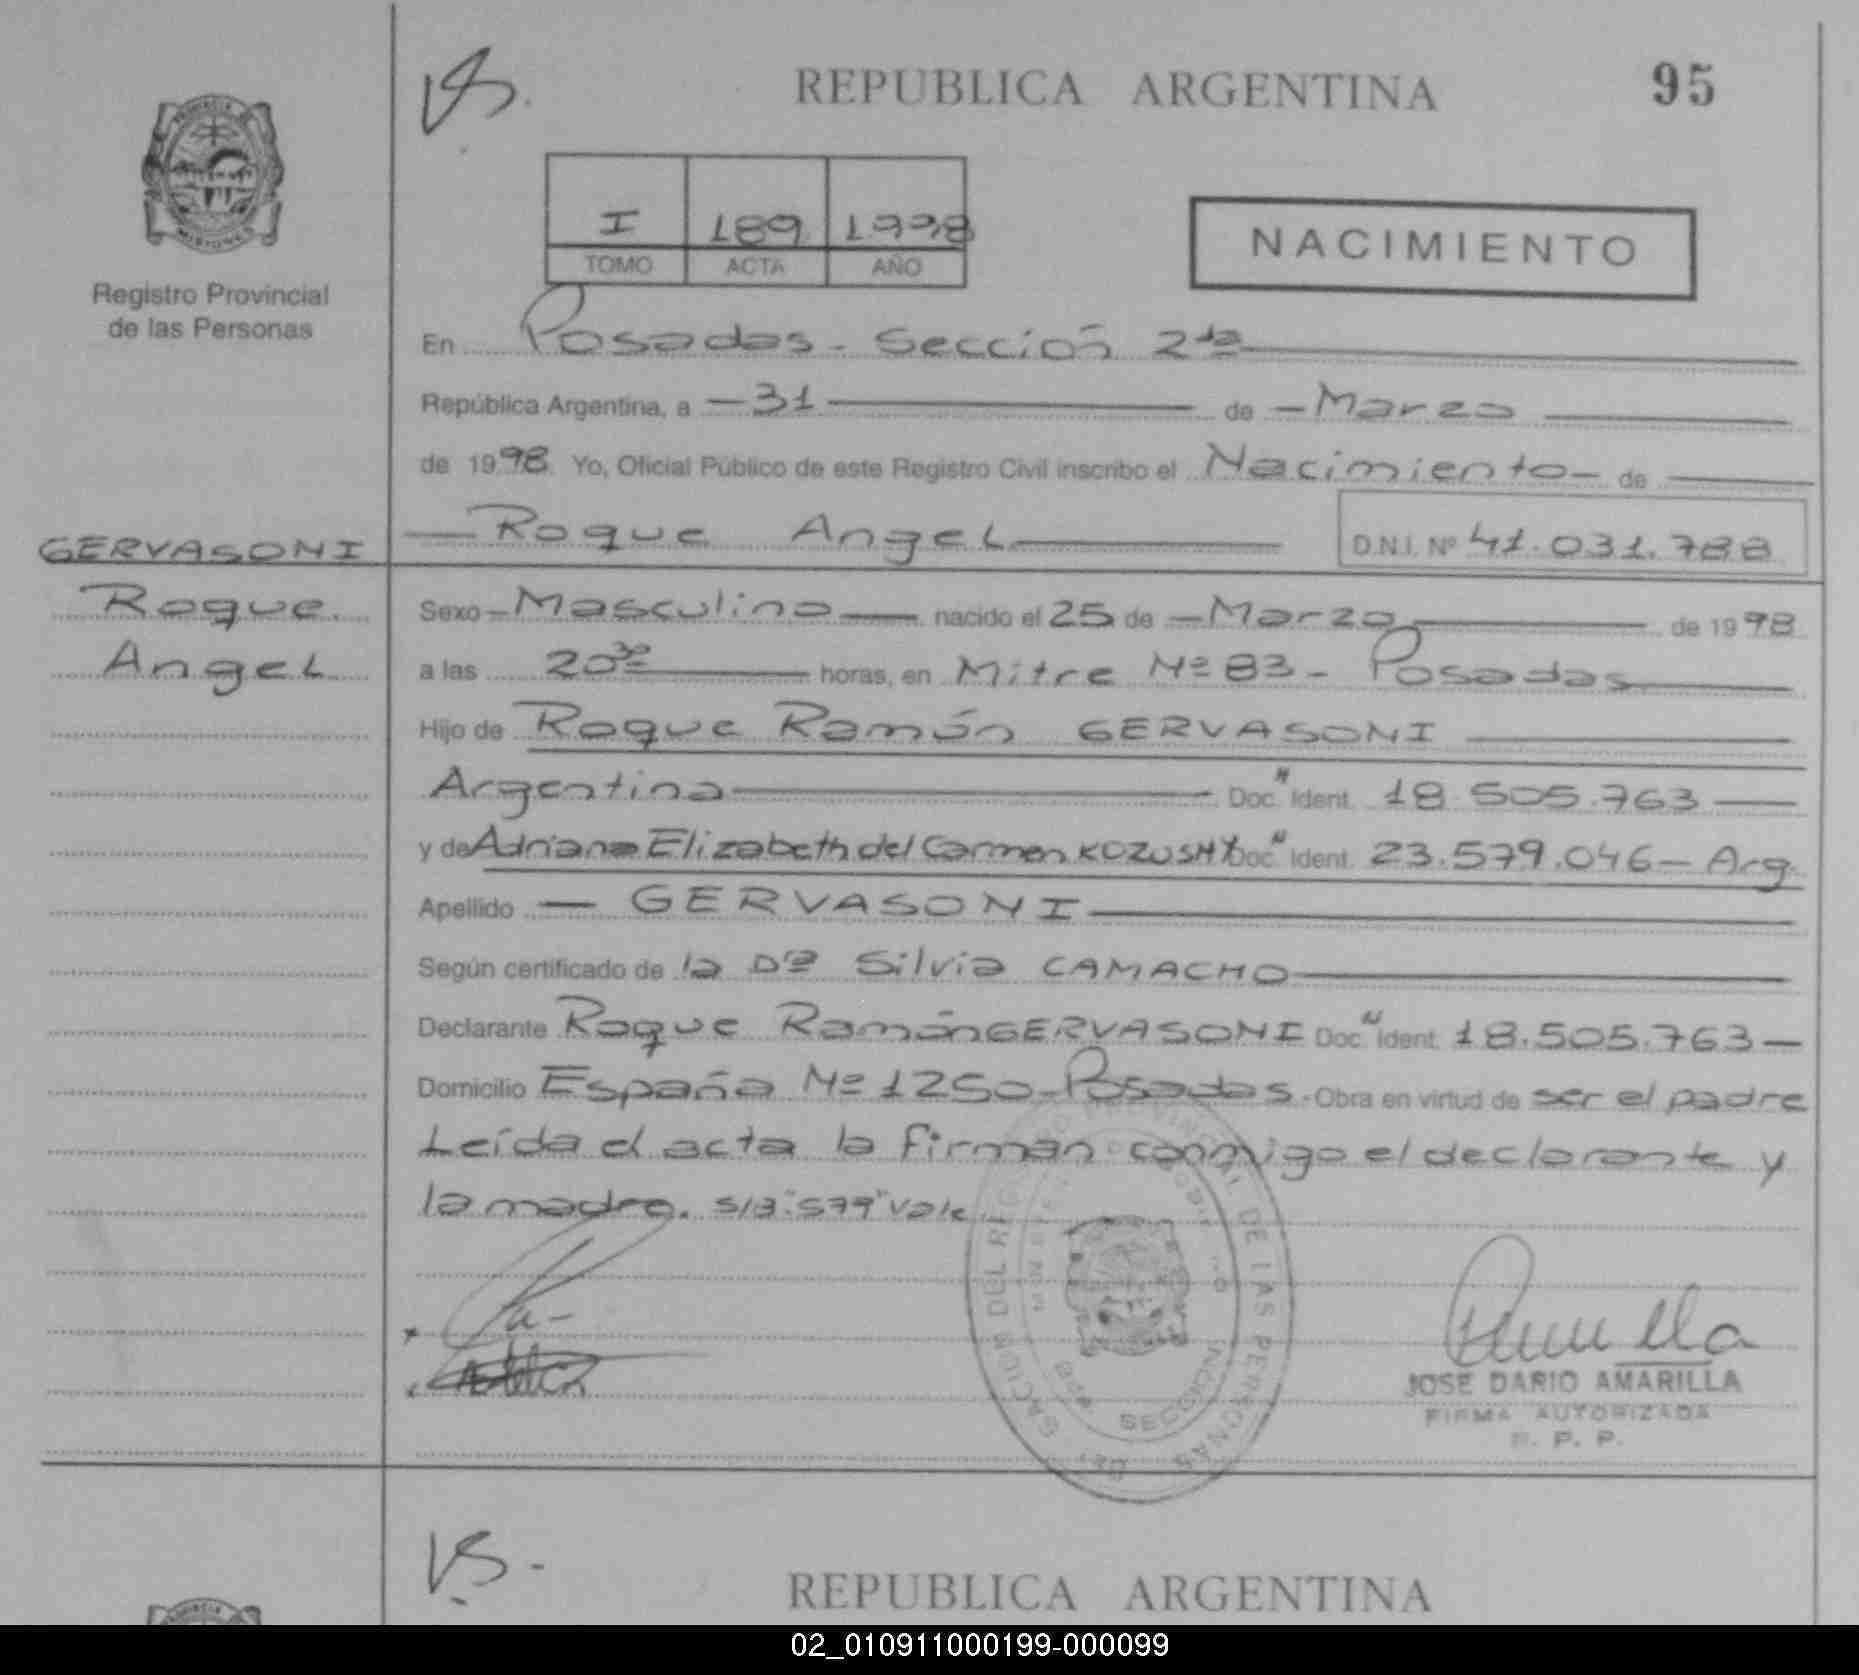 REPUBLICA ARGENTINA
95
I 189 1998
TOMO ACTA AÑO
NACIMIENTO
PROVINCIA DE
MISIONES
Registro Provincial
de las Personas
En Posadas - Sección 2da
República Argentina, a - 31 de - Marzo
de 1998. Yo, Oficial Público de este Registro Civil inscribo el Nacimiento - de
Roque Angel
D.N.I. Nº 41.031.788
GERVASONI
Roque
Angel
Sexo - Masculino nacido el 25 de - Marzo de 1998
a las 20 30 horas, en Mitre Nº 83 - Posadas
Hijo de Roque Ramón GERVASONI
Argentina Doc. Ident. 18.505.763
y de Adriana Elizabeth del Carmen KOZUSNY Doc. Ident. 23.579.046 - Arg.
Apellido - GERVASONI
Según certificado de la Dra Silvia CAMACHO
Declarante Roque Ramón GERVASONI Doc. Ident. 18.505.763 -
Domicilio España Nº 1250 - Posadas. Obra en virtud de ser el padre
Leída el acta la firman conmigo el declarante y
la madre. S/B "579" Vale
JOSE DARIO AMARILLA
FIRMA AUTORIZADA
R. P. P.
REPUBLICA ARGENTINA
02_010911000199-000099